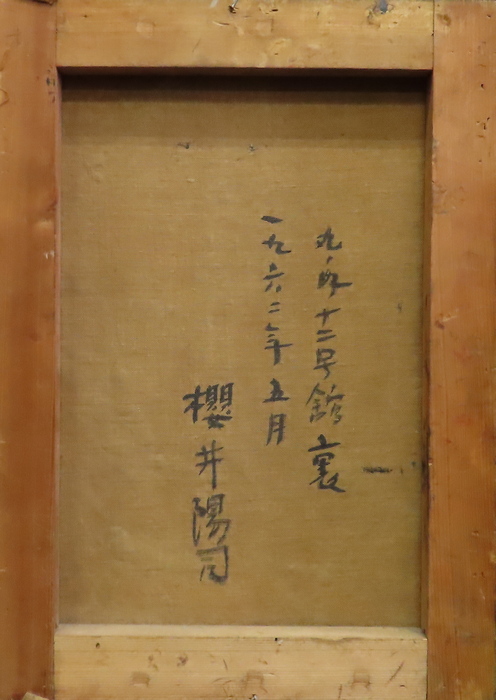 丸の内十二号館裏
一九六二年五月
櫻井陽司